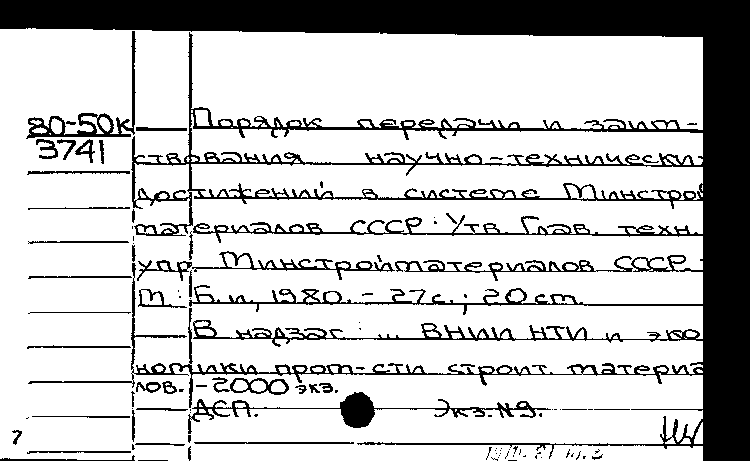 80-50к
3741
Порядок передачи и заимствования научно-технически
достижений в системе Минстрой
материалов СССР: Утв. Глав. техн.
упр. Минстройматериалов СССР. -
М.: Б.и., 1980. - 27с.; 20 см.
В надзаг.: ... ВНИИ НТИ и эко
номики пром-сти строит. материа
лов. - 2000 экз.
ДСП. Экз. N9.
7